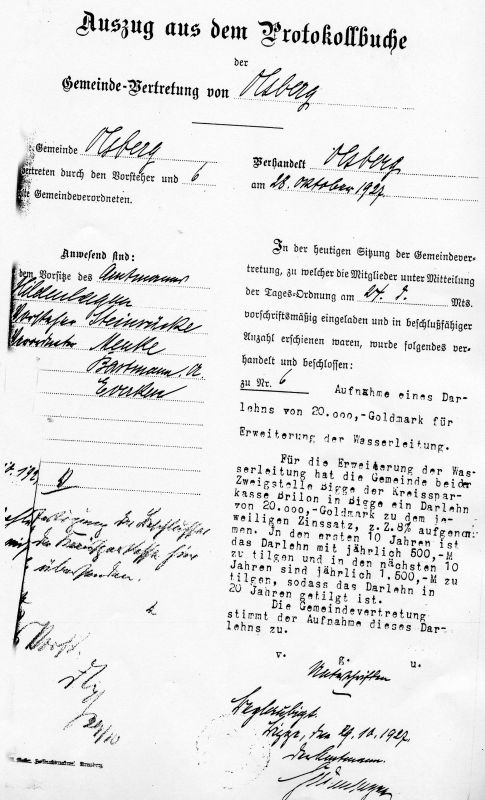 Auszug aus dem Protokollbuche
der
Gemeinde-Vertretung von Olsberg
Gemeinde Olsberg
vertreten durch den Vorsteher und 6
Gemeindeverordneten.
Verhandelt Olsberg
am 28. Oktober 1927
Anwesend sind:
dem Vorsitze des Amtmanns
Hüdenhagen
Vorsteher Steinrücke
Menke
Bartmann
Everken
In der heutigen Sitzung der Gemeindever-
tretung, zu welcher die Mitglieder unter Mitteilung
der Tages-Ordnung am 24. d. Mts.
vorschriftsmäßig eingeladen und in beschlußfähiger
Anzahl erschienen waren, wurde folgendes ver-
handelt und beschlossen:
zu Nr. 6 Aufnahme eines Dar-
lehns von 20.000,-Goldmark für
Erweiterung der Wasserleitung.
Für die Erweiterung der Was-
serleitung hat die Gemeinde beider
Zweigstelle Bigge der Kreisspar-
kasse Brilon in Bigge ein Darlehn
von 20.000,-Goldmark zu dem je
weiligen Zinssatz, z.Z.8% aufgenom
men. Jn den ersten 10 Jahren ist
das Darlehn mit jährlich 500,-M
zu tilgen und in den nächsten 10
Jahren sind jährlich 1.500,-M zu
tilgen, sodass das Darlehn in
20 Jahren getilgt ist.
Die Gemeindevertretung
stimmt der Aufnahme dieses Dar-
lehns zu.
v. g. u.
Unterschriften
Beglaubigt.
Bigge, den 29.10.1927.
Der Amtmann.